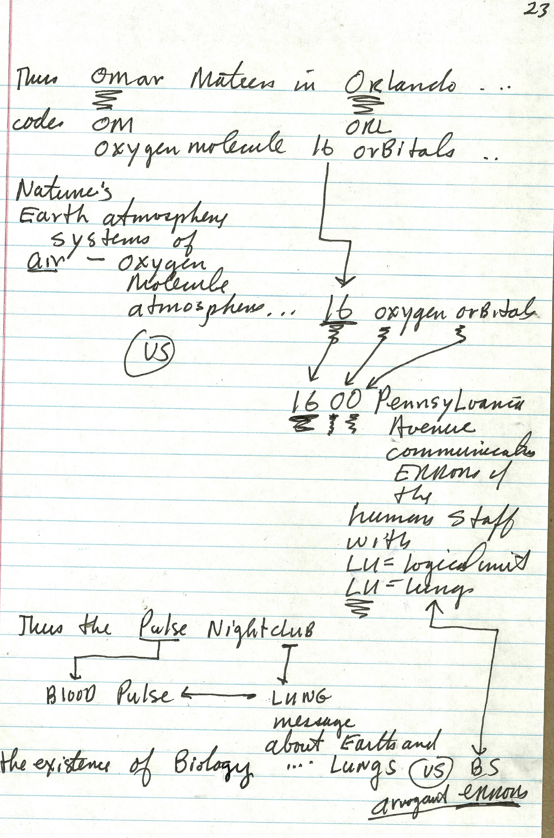 23
Thus Omar Mateen in Orlando ...
codes OM ORL
oxygen molecule 16 orBitals ..
Nature's
Earth atmosphere
systems of
air – oxygen
Molecule
atmosphere... 16 oxygen orbitals
VS
16 00 Pennsylvania
Avenue
communicates
ERRORS of
the
human staff
with
LU = logical unit
LU = lungs
Thus the Pulse NightcluB
BlOOD Pulse ↔ LUNG
message
about Earth and
the existence of Biology .... Lungs VS BS
arrogant errors